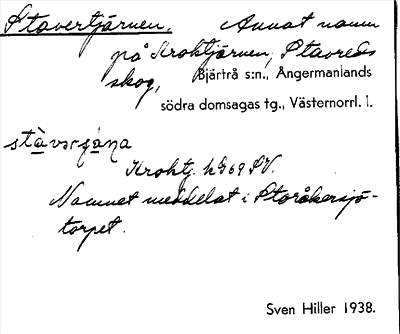 Stavertjärnen. Annat namn
på Kroktjärnen, Stavreds
skog, Bjärtrå s:n., Ångermanlands
södra domsagas tg., Västernorrl. l.
stàvərʒa̤na
Kroktj. h G 69 SV.
Namnet meddelat i Storåkersjö-
torpet.
Sven Hiller 1938.